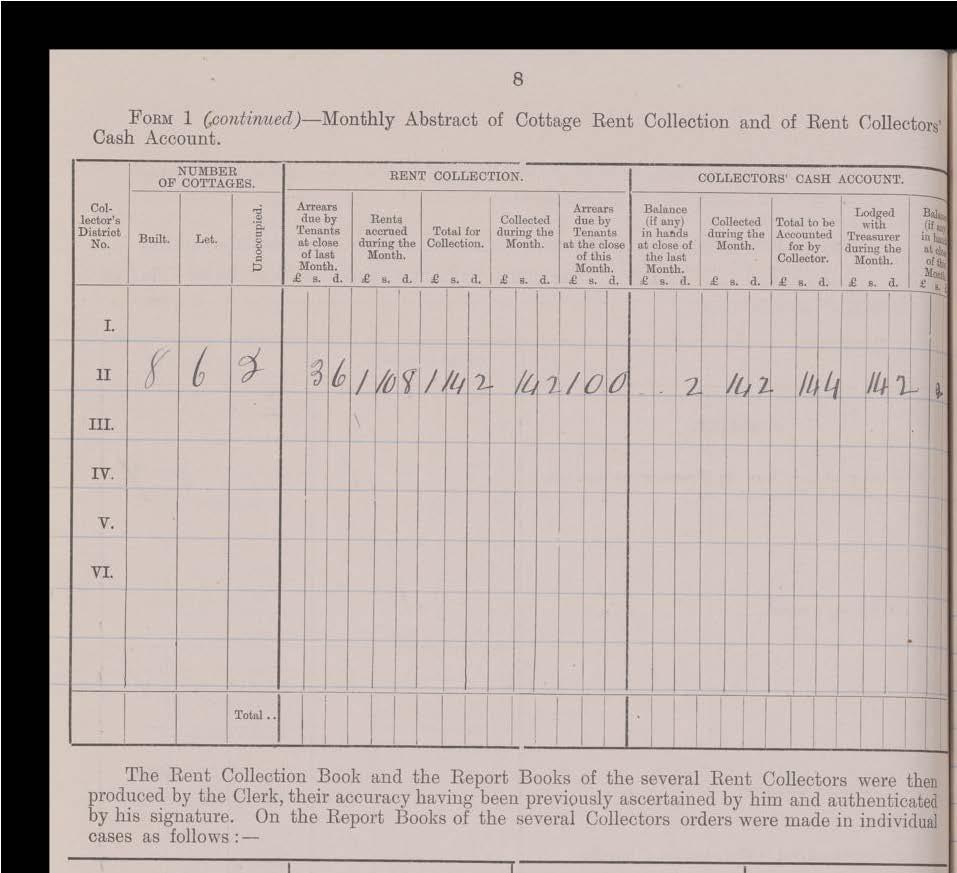 8
FORM 1 (continued)—Monthly Abstract of Cottage Rent Collection and of Rent Collectors'
Cash Account.
Collector's District No.
NUMBER OF COTTAGES.
Built.
Let.
Unoccupied.
RENT COLLECTION.
Arrears due by Tenants at close of last Month.
£ s. d.
Rents accrued during the Month.
£ s. d.
Total for Collection.
£ s. d.
Collected during the Month.
£ s. d.
Arrears due by Tenants at the close of this Month.
£ s. d.
COLLECTORS' CASH ACCOUNT.
Balance (if any) in hands at close of the last Month.
£ s. d.
Collected during the Month.
£ s. d.
Total to be Accounted for by Collector.
£ s. d.
Lodged with Treasurer during the Month.
£ s. d.
(if any
in
at
of
£ s.
I.
II 8 6 2 3 6 1 10 8 1 14 2 14 2 1 0 0 2 14 2 14 4 14 2 2
III.
IV.
V.
VI.
Total ..
The Rent Collection Book and the Report Books of the several Rent Collectors were then
produced by the Clerk, their accuracy having been previously ascertained by him and authenticated
by his signature. On the Report Books of the several Collectors orders were made in individual
cases as follows :—